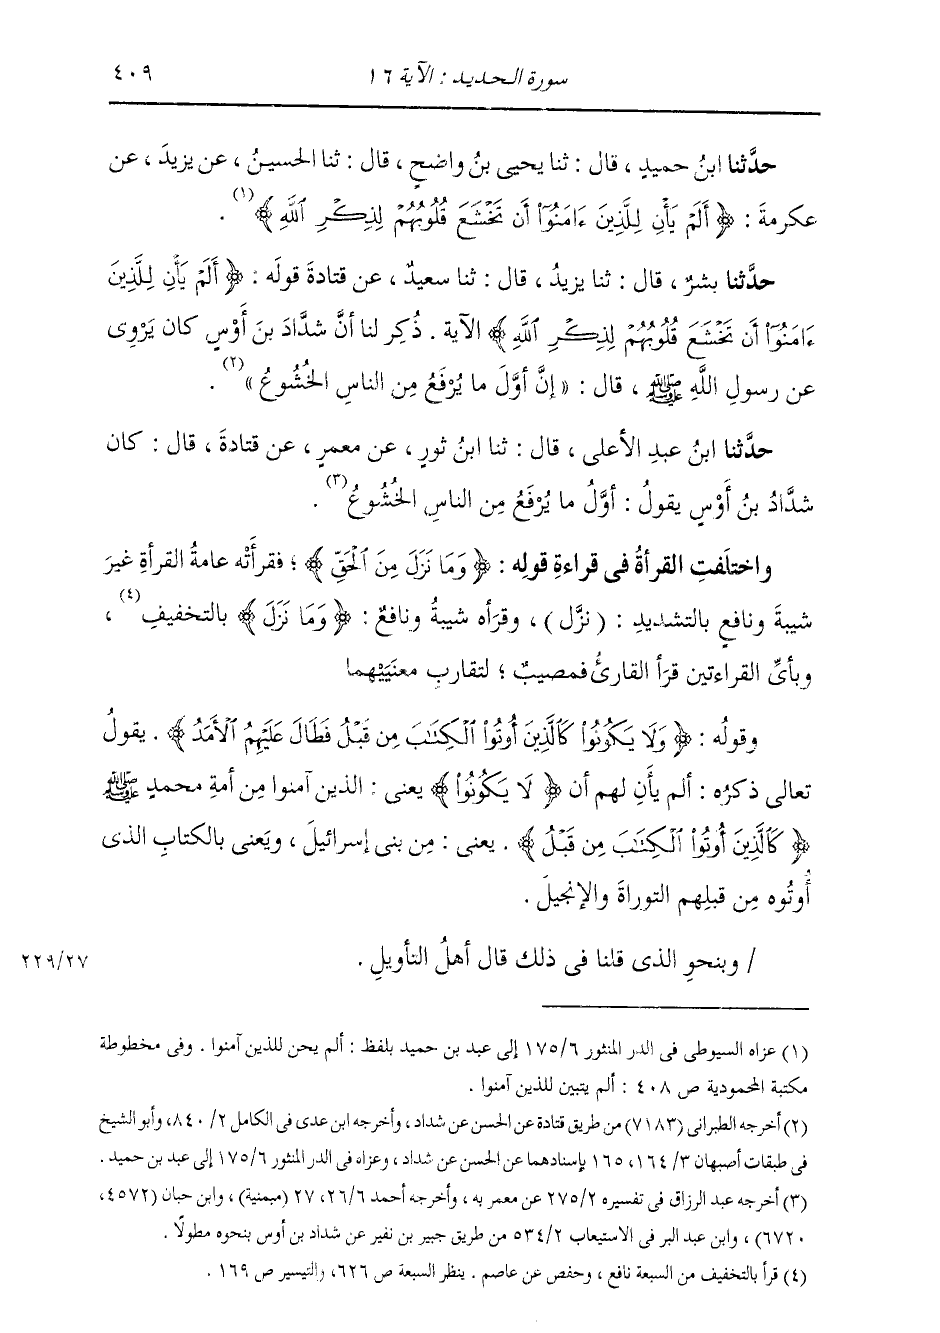 سورة الحديد : الآية ١٦
٤٠٩
حدَّثنا ابنُ حميدٍ ، قال : ثنا يحيى بنُ واضحٍ ، قال : ثنا الحسينُ ، عن يزيدَ ، عن
عكرمةَ : ﴿ أَلَمْ يَأْنِ لِلَّذِينَ ءَامَنُوٓا۟ أَن تَخْشَعَ قُلُوبُهُمْ لِذِكْرِ ٱللَّهِ ﴾(١) .
حدَّثنا بشرٌ ، قال : ثنا يزيدُ ، قال : ثنا سعيدٌ ، عن قتادةَ قولَه : ﴿ أَلَمْ يَأْنِ لِلَّذِينَ
ءَامَنُوٓا۟ أَن تَخْشَعَ قُلُوبُهُمْ لِذِكْرِ ٱللَّهِ ﴾ الآية . ذُكِر لنا أنَّ شدَّادَ بنَ أَوْسٍ كان يَرْوِى
عن رسولِ اللَّهِ ﷺ ، قال : « إنَّ أوَّلَ ما يُرْفَعُ مِن الناسِ الخُشُوعُ »(٢) .
حدَّثنا ابنُ عبدِ الأعلى ، قال : ثنا ابنُ ثورٍ ، عن معمرٍ ، عن قتادةَ ، قال : كان
شدَّادُ بنُ أَوْسٍ يقولُ : أوَّلُ ما يُرْفَعُ مِن الناسِ الخُشُوعُ(٣) .
واختلَفتِ القرأةُ فى قراءةِ قولِه : ﴿ وَمَا نَزَلَ مِنَ ٱلْحَقِّ ﴾ ؛ فقرأَتْه عامةُ القرأةِ غيرَ
شيبةَ ونافعٍ بالتشديدِ : ( نزَّل ) ، وقرَأه شيبةُ ونافعٌ : ﴿ وَمَا نَزَلَ ﴾ بالتخفيفِ(٤) ،
وبأىِّ القراءتين قرَأ القارئُ فمصيبٌ ؛ لتقاربِ معنَيَيْهما
وقولُه : ﴿ وَلَا يَكُونُوا۟ كَٱلَّذِينَ أُوتُوا۟ ٱلْكِتَٰبَ مِن قَبْلُ فَطَالَ عَلَيْهِمُ ٱلْأَمَدُ ﴾ . يقولُ
تعالى ذكرُه : ألم يأنِ لهم أن ﴿ لَا يَكُونُوا۟ ﴾ يعنى : الذين آمنوا مِن أمةِ محمدٍ ﷺ
﴿ كَٱلَّذِينَ أُوتُوا۟ ٱلْكِتَٰبَ مِن قَبْلُ ﴾ . يعنى : مِن بنى إسرائيلَ ، ويَعنى بالكتابِ الذى
أُوتُوه مِن قبلِهم التوراةَ والإنجيلَ .
/ وبنحوِ الذى قلنا فى ذلك قال أهلُ التأويلِ .
٢٢٩/٢٧
(١) عزاه السيوطى فى الدر المنثور ١٧٥/٦ إلى عبد بن حميد بلفظ : ألم يحن للذين آمنوا . وفى مخطوطة
مكتبة المحمودية ص ٤٠٨ : ألم يتبين للذين آمنوا .
(٢) أخرجه الطبرانى (٧١٨٣) من طريق قتادة عن الحسن عن شداد ، وأخرجه ابن عدى فى الكامل ٨٤٠/٢، وأبو الشيخ
فى طبقات أصبهان ٣/ ١٦٤، ١٦٥ بإسنادهما عن الحسن عن شداد ، وعزاه فى الدر المنثور ١٧٥/٦ إلى عبد بن حميد .
(٣) أخرجه عبد الرزاق فى تفسيره ٢٧٥/٢ عن معمر به ، وأخرجه أحمد ٢٦/٦، ٢٧ (ميمنية) ، وابن حبان (٤٥٧٢،
٦٧٢٠) ، وابن عبد البر فى الاستيعاب ٥٣٤/٢ من طريق جبير بن نفير عن شداد بن أوس بنحوه مطولًا .
(٤) قرأ بالتخفيف من السبعة نافع ، وحفص عن عاصم . ينظر السبعة ص ٦٢٦، والتيسير ص ١٦٩ .